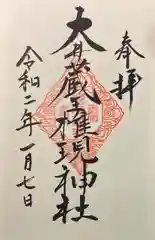 奉拝
大井蔵王権現神社
令和二年一月七日